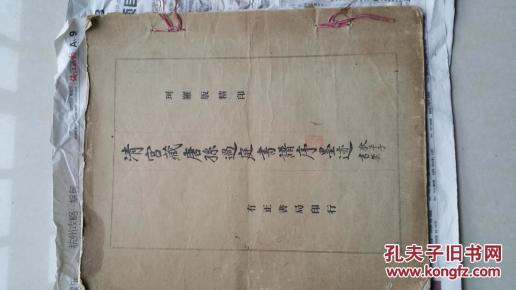 珂羅版精印
清宮藏唐孫過庭書譜序墨迹
有正書局印行
A-9
孔夫子旧书网
www.kongfz.com